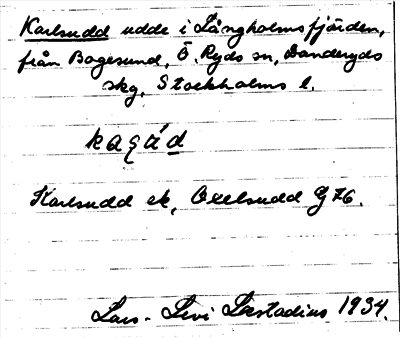 Karlsudd udde i Långholmsfjärden,
från Bogesund, Ö. Ryds sn, Danderyds
skg, Stockholms l.
Karlsudd ek, Oxelsudd G 76.
Lars-Levi Læstadius 1934.